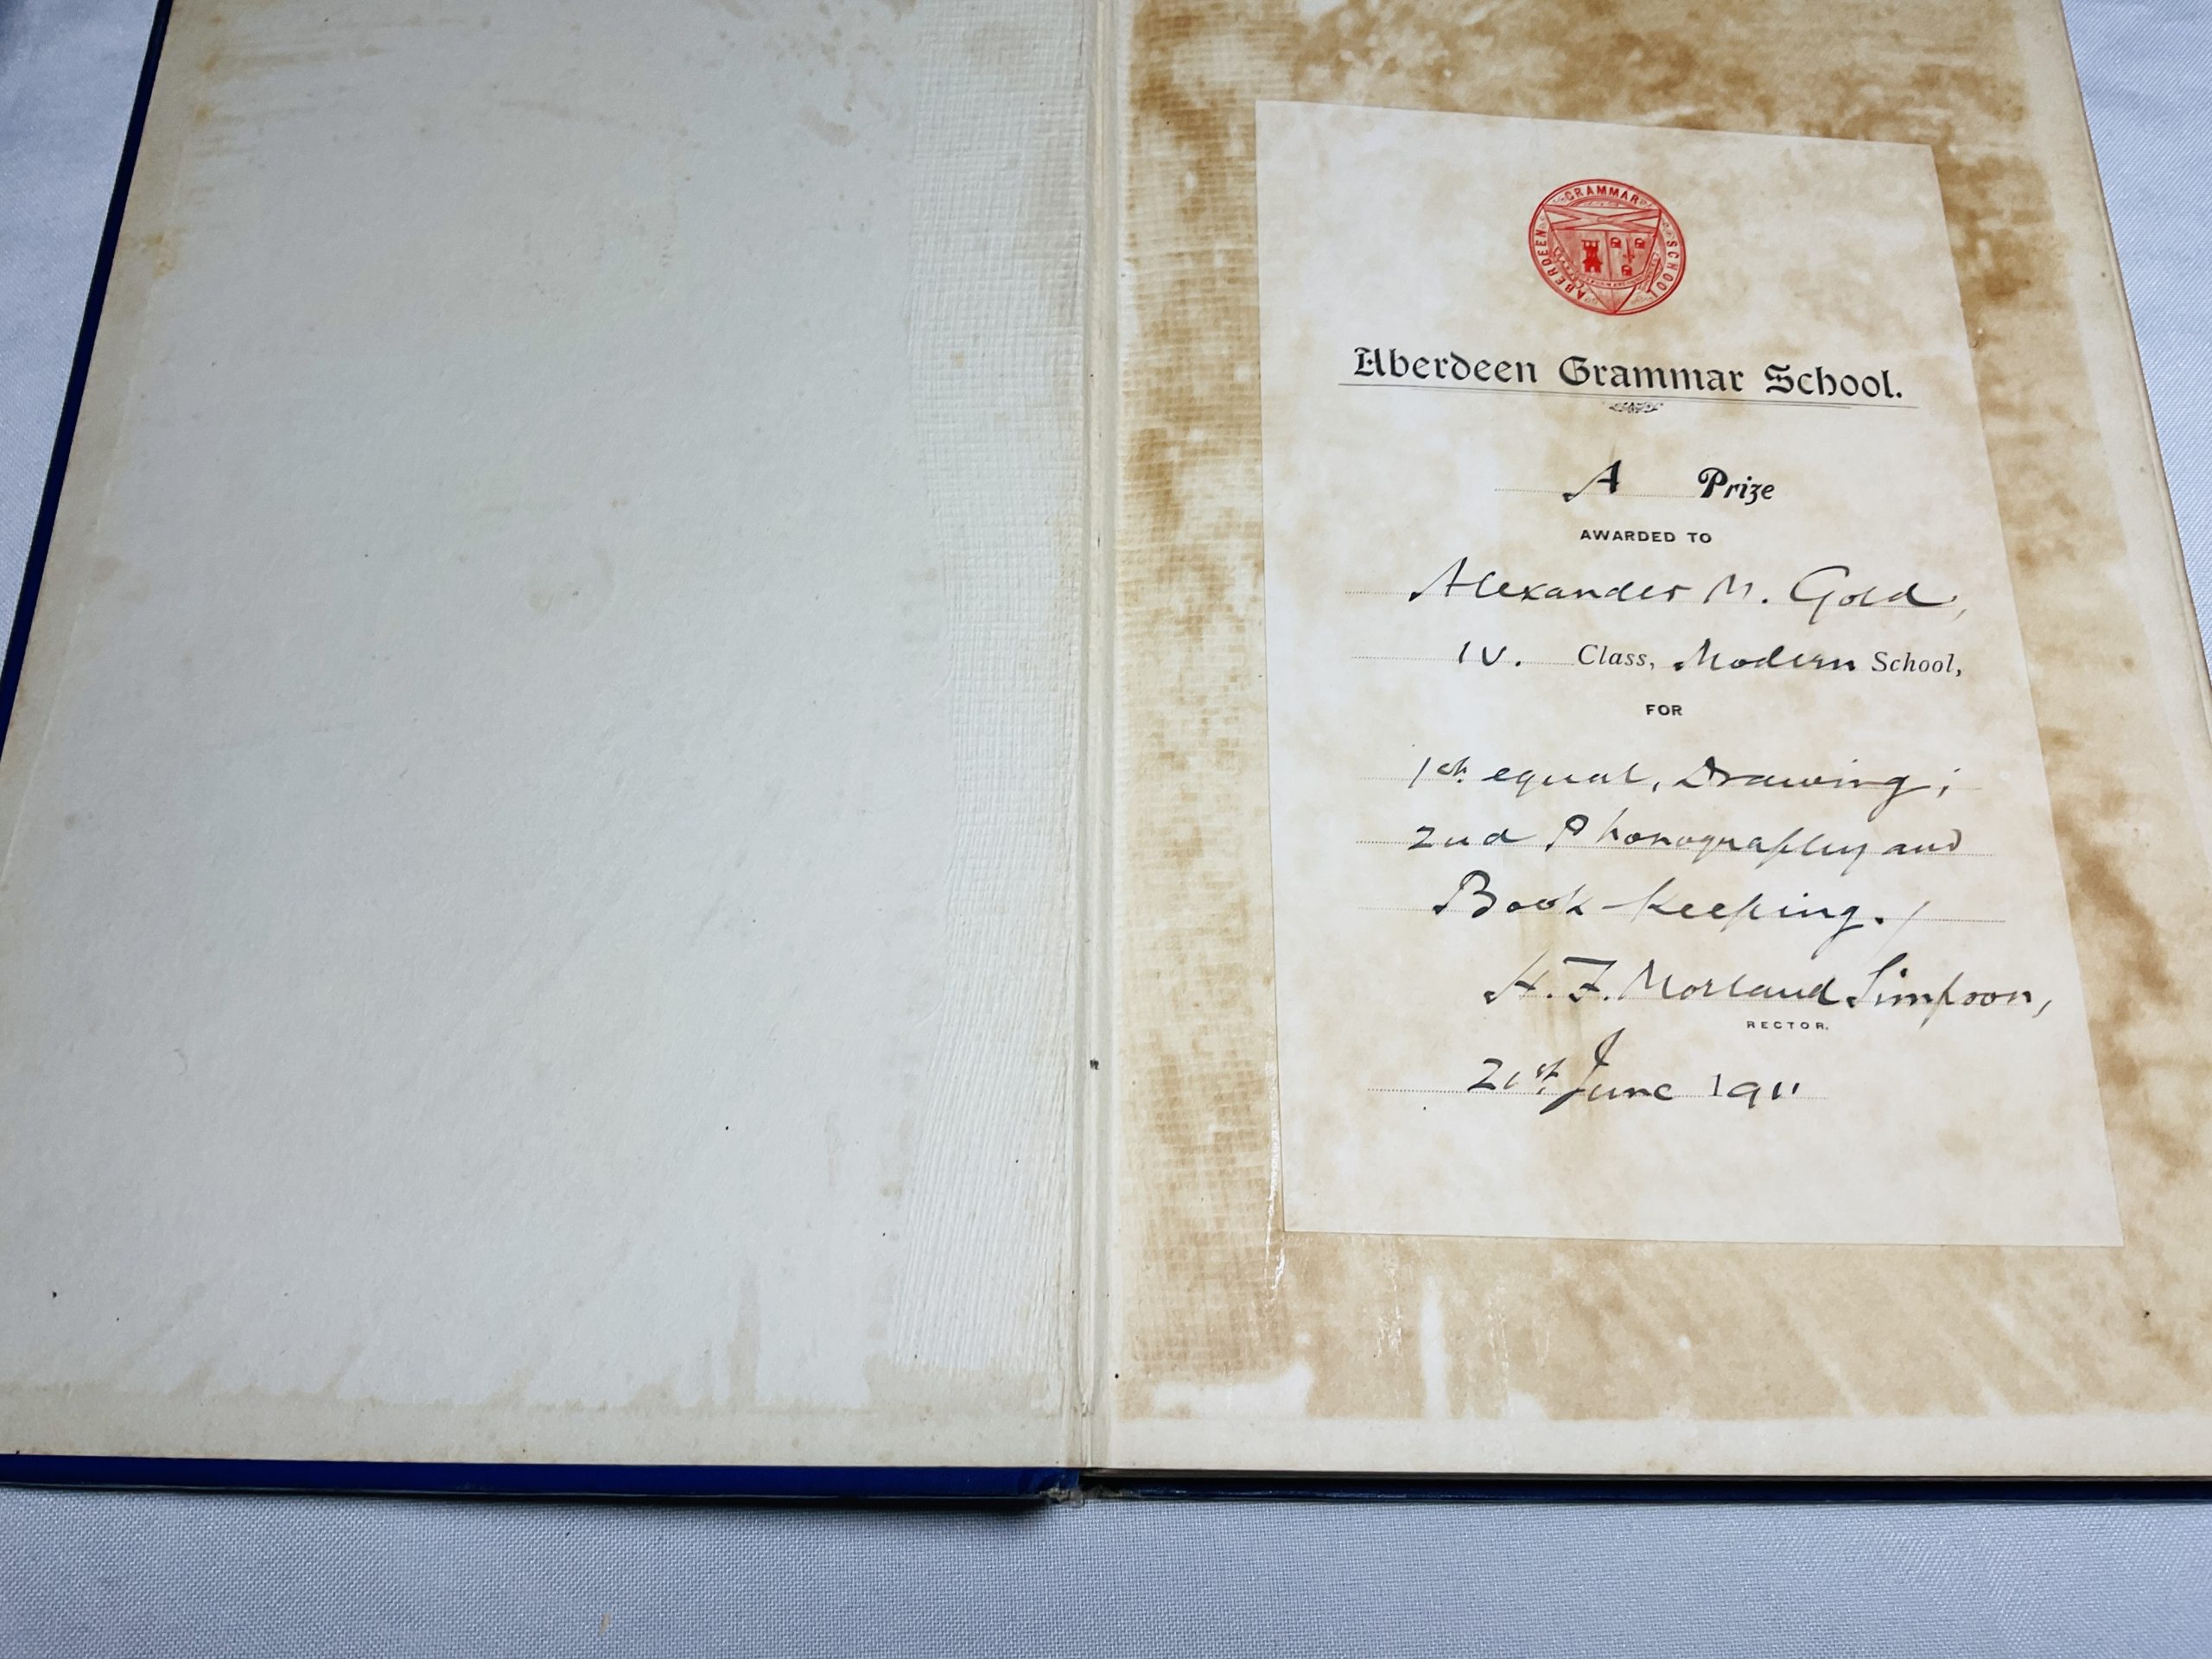 ABERDEEN GRAMMAR SCHOOL
Aberdeen Grammar School.
A Prize
AWARDED TO
Alexander M. Gold,
IV. Class, Modern School,
FOR
1st equal, Drawing;
2nd Phonography and
Book-keeping.
H. F. Morland Simpson,
RECTOR.
21st June 1911